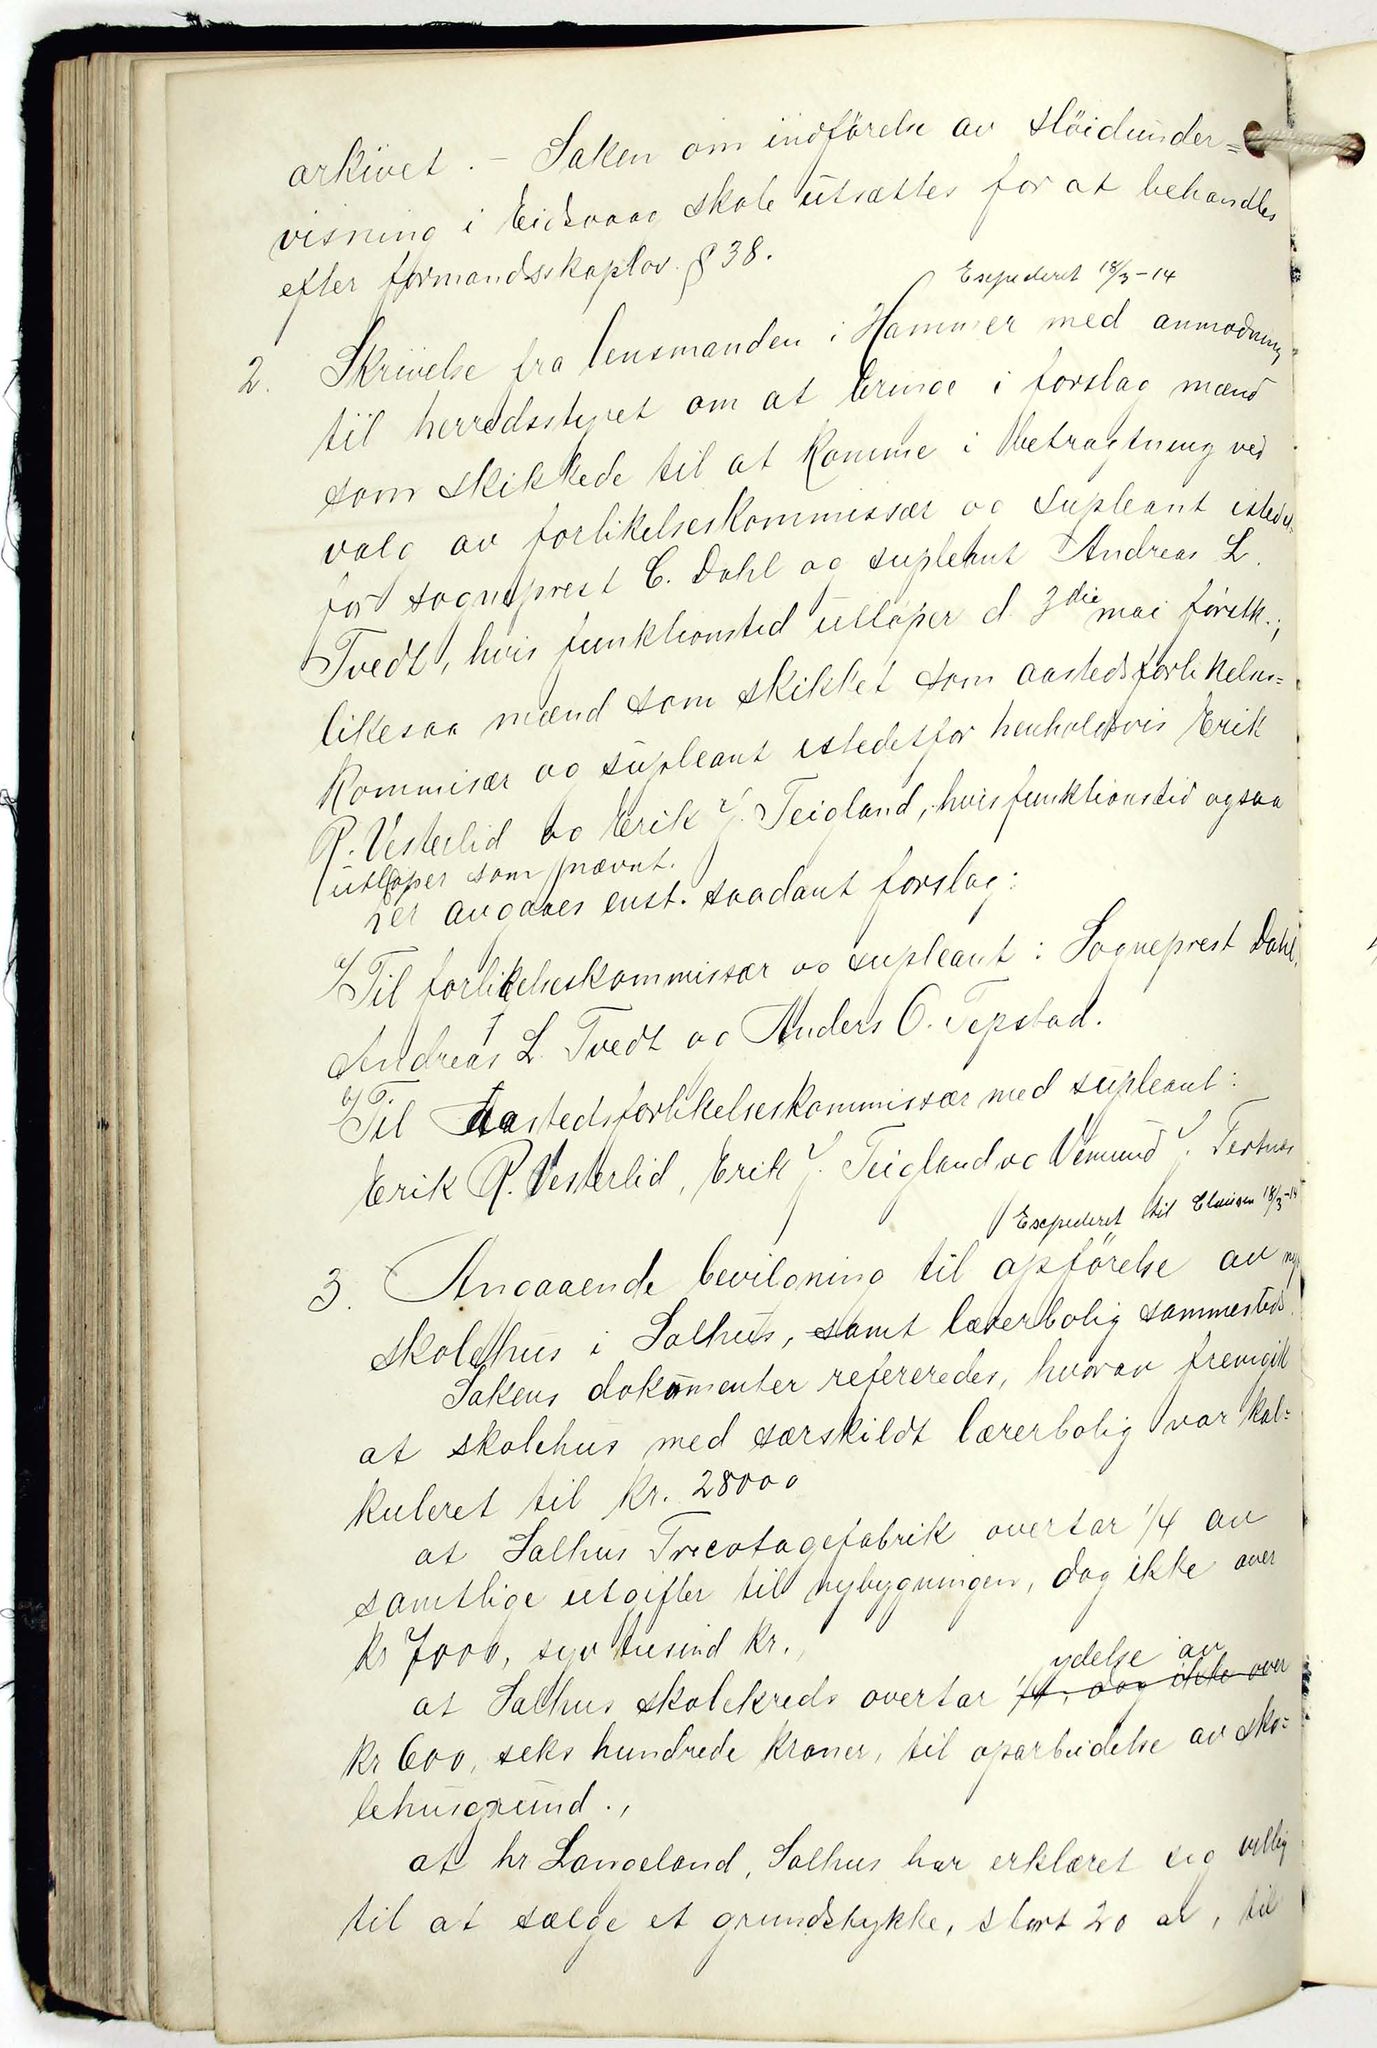 arkivet. – Saken om indførelse av sløidunder=
visning i Eidsvaag skole utsættes for at behandles
efter formandsskapslov. § 38.
Exspederet 18/3-14
2. Skrivelse fra lensmanden i Hammer med anmodning
til herredsstyret om at bringe i forslag mænd
som skikkede til at komme i betragtning ved
valg av forlikelseskommissær og supleant istedet-
for sogneprest C. Dahl og supleant Andreas L.
Tvedt, hvis funktionstid utløper d. 3die mai førstk.;
likesaa mænd som skikket som aastedsforlikelses=
kommisær og supleant istedetfor henholdsvis Erik
R. Vesterlid og Erik J. Teigland, hvis funktionstid ogsaa
utløper som nævnt.
Der avgaaes enst. saadant forslag:
a/ Til forlikelseskommissær og supleant: Sogneprest Dahl,
Andreas L. Tvedt og Anders O. Tepstad.
b/ Til Aastedsforlikelseskommissær med supleant:
Erik R. Vesterlid, Erik J. Teigland og Vemund J. Tertnes
Exspederet til Clausen 18/3-14
3. Angaaende bevilgning til opførelse av nyt
skolehus i Salhus, samt lærerbolig sammesteds.
Sakens dokumenter refereredes, hvorav fremgik
at skolehus med særskildt lærerbolig var kal=
kuleret til kr. 28000
at Salhus Tricotagefabrik overtar 1/4 av
samtlige utgifter til nybygningen, dog ikke over
kr 7000, syv tusind kr.,
ydelse av
at Salhus skolekreds overtar 1/4, dog ikke over
kr 600, seks hundrede kroner, til oparbeidelse av sko=
lehusgrund.,
at hr Langeland, Salhus har erklæret sig villig
til at sælge et grundstykke, stort 20 ar, til